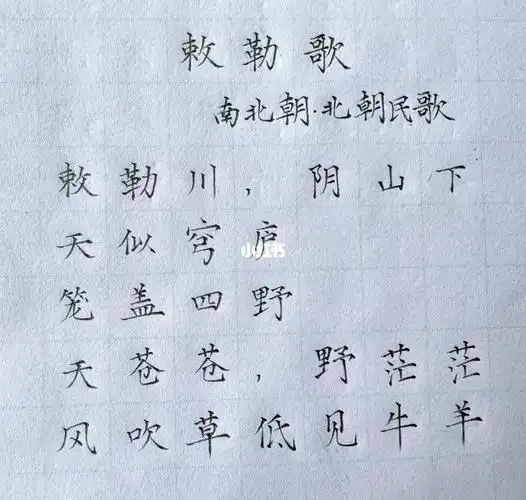 敕勒歌
南北朝·北朝民歌
敕勒川，阴山下
天似穹庐
小红书
笼盖四野
天苍苍，野茫茫
风吹草低见牛羊